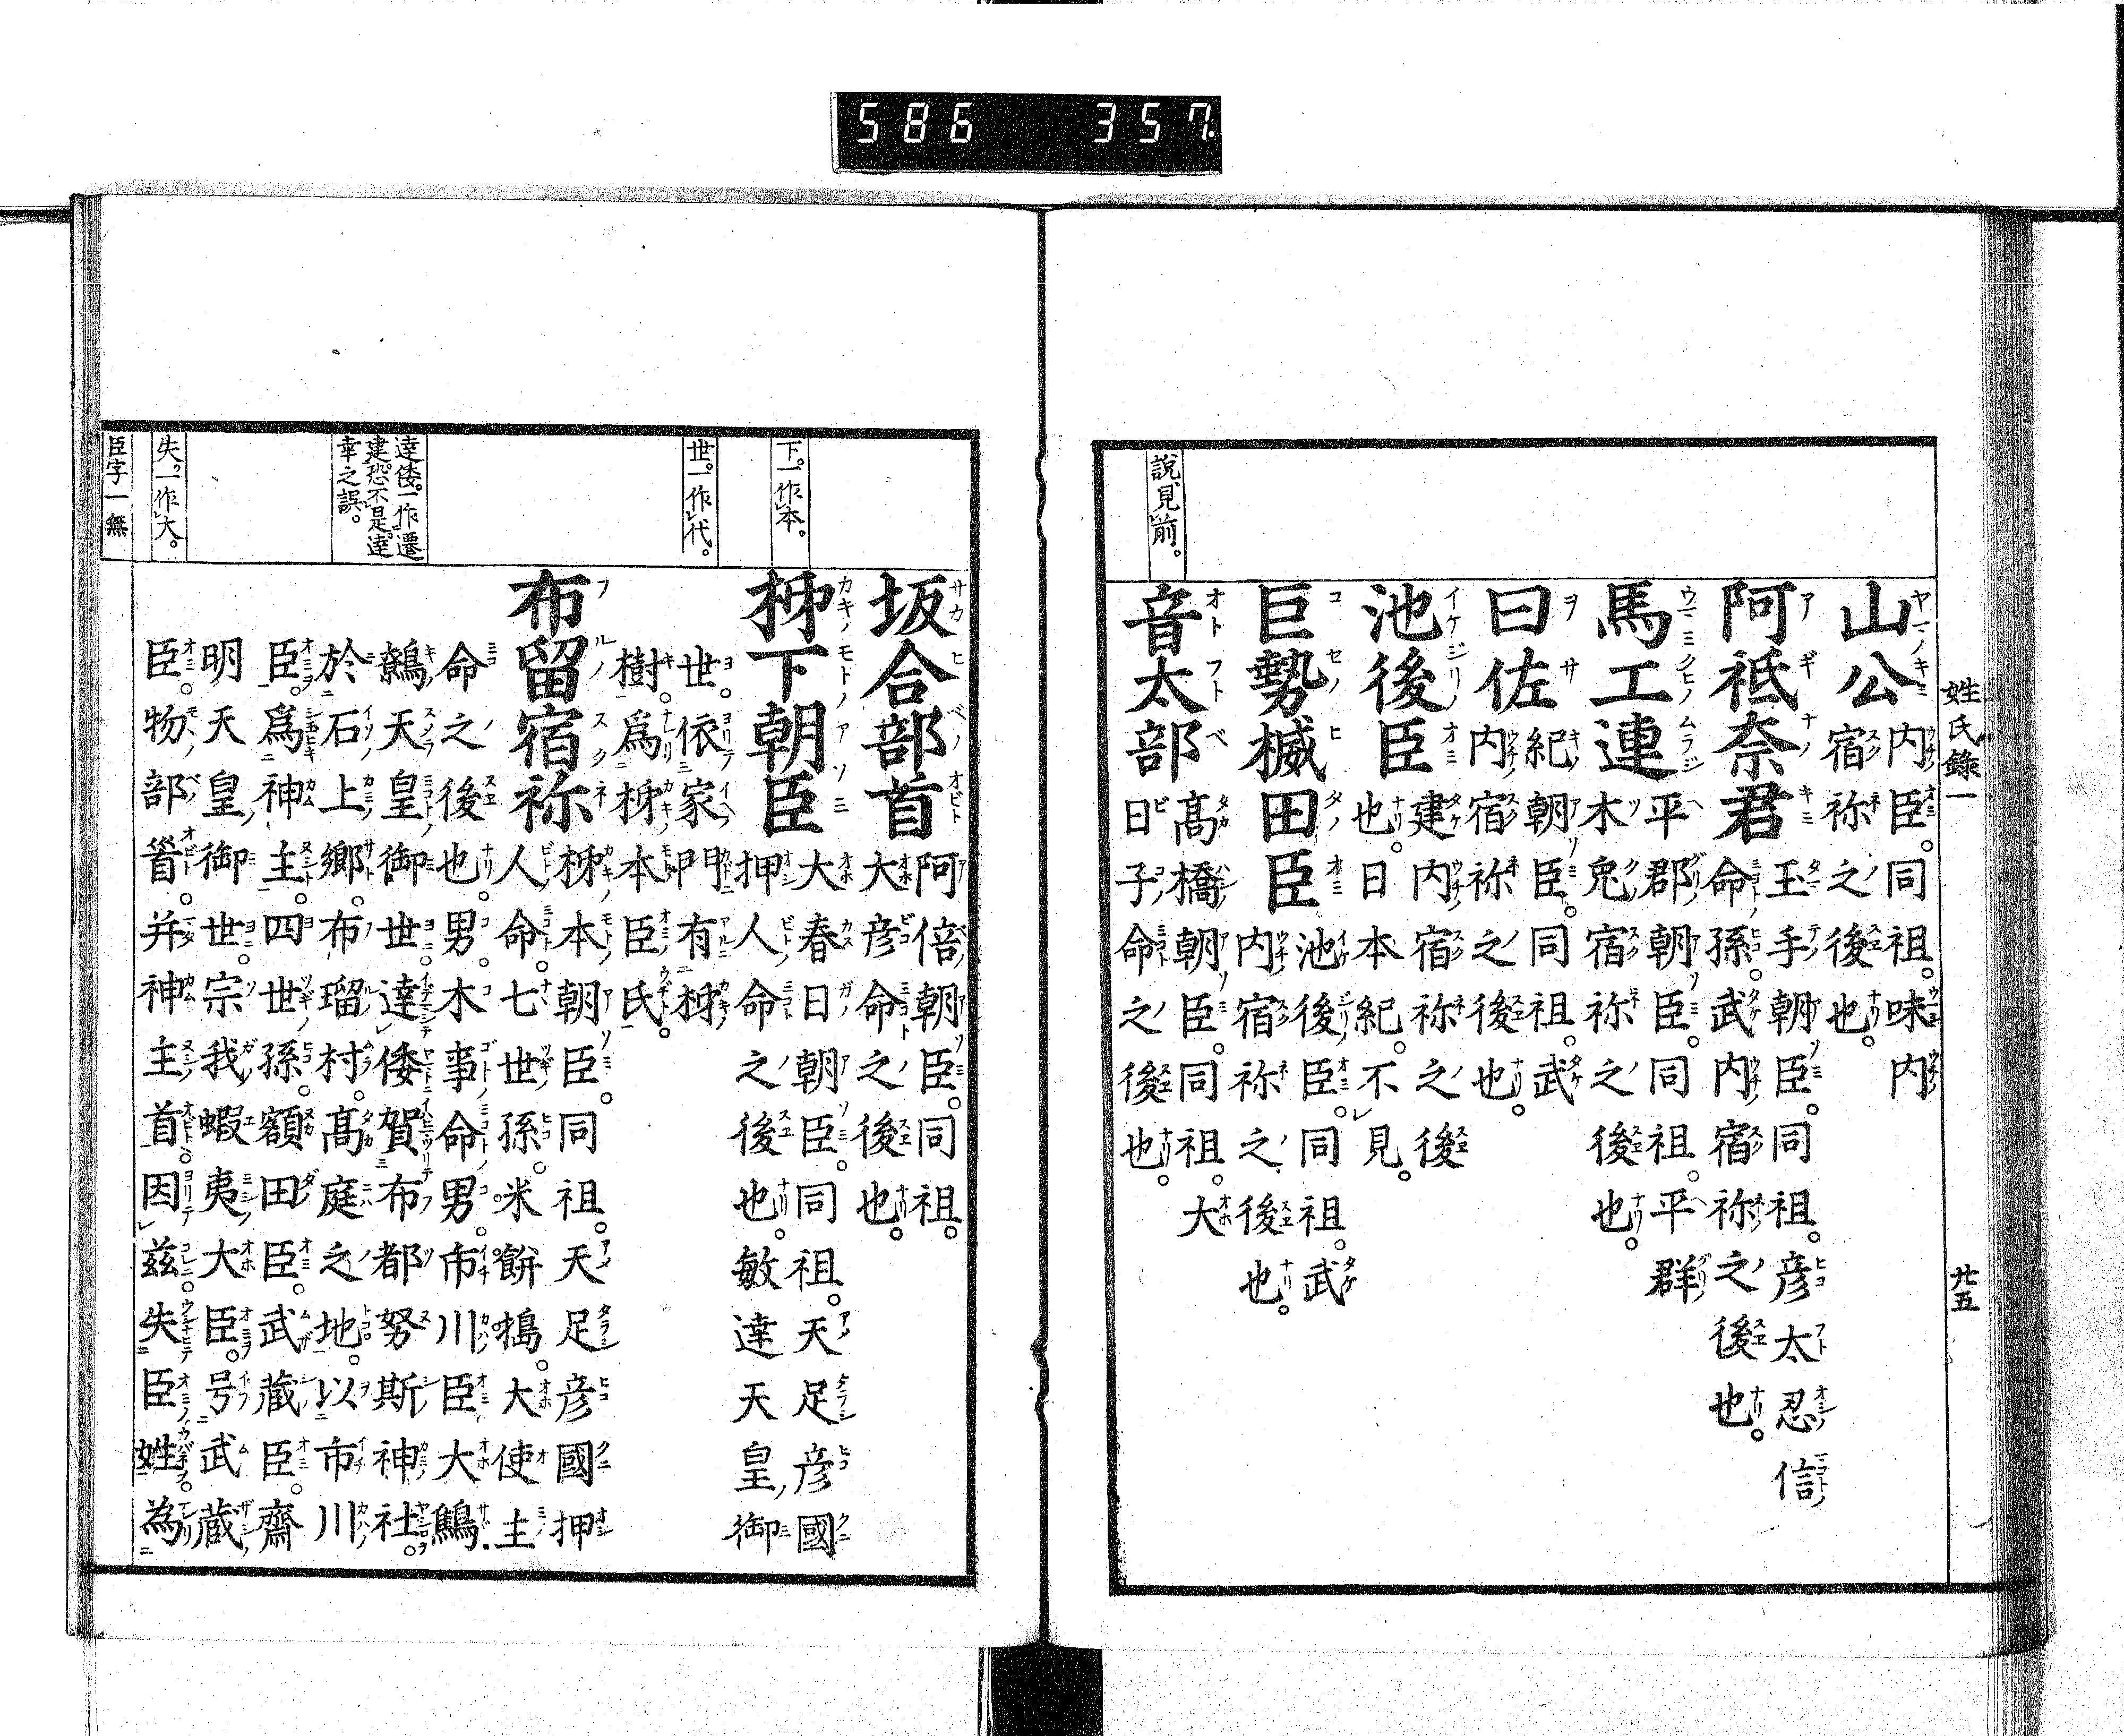 586 357.
姓氏録一
廿五
山公内臣。同祖。味内
宿祢之後也。
阿祗奈君玉手朝臣。同祖。彦太忍信
命孫。武内宿祢之後也。
馬工連平郡朝臣。同祖。平群
木兎宿祢之後也。
曰佐紀朝臣。同祖。武
内宿祢之後也。
池後臣建内宿祢之後
也。日本紀。不見。
巨勢槭田臣池後臣。同祖。武
内宿祢之後也。
音太部髙橋朝臣。同祖。大
日子命之後也。
說見前。
坂合部首阿倍朝臣。同祖。
大彦命之後也。
柹下朝臣大春日朝臣。同祖。天足彦國
押人命之後也。敏達天皇御
世。依家門有柹
樹。爲柹本臣氏。
布留宿祢柹本朝臣。同祖。天足彦國押
人命。七世孫。米餅搗。大使主
命之後也。男。木事命男。市川臣大鷦
鷯天皇御世。達倭賀布都努斯神社。
於石上鄉。布瑠村。髙庭之地。以市川
臣。爲神主。四世孫。額田臣。武藏臣。齋
明天皇御世。宗我蝦夷大臣。号武蔵
臣。物部首。并神主首。因兹失臣姓為
下。一作本。
世。一作代。
達倭。一作遷
建。恐不是。達
幸之誤。
失。一作大。
臣字一無